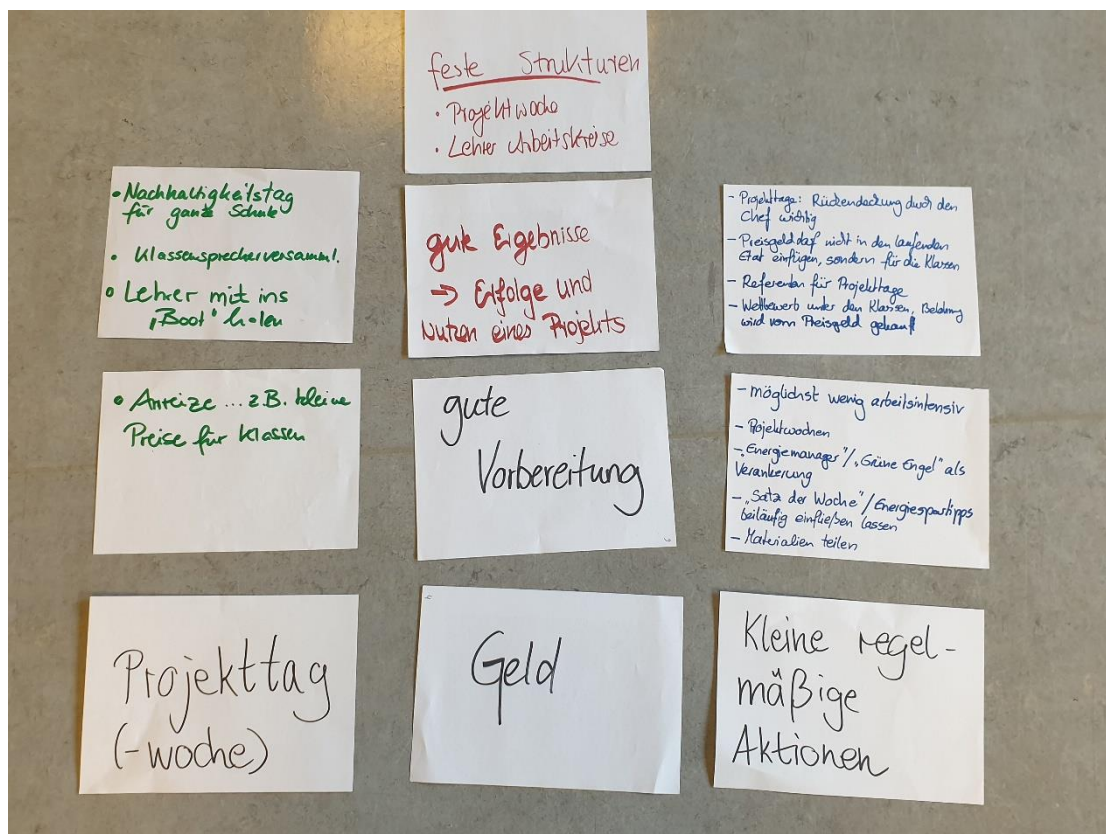 feste Strukturen
· Projektwoche
· Lehrer Arbeitskreise
• Nachhaltigkeitstag
für ganze Schule
• Klassensprecherversamml.
• Lehrer mit ins
„Boot" holen
gute Ergebnisse
→ Erfolge und
Nutzen eines Projekts
– Projekttage: Rückendeckung durch den
Chef wichtig
– Preisgeld darf nicht in den laufenden
Etat einfügen, sondern für die Klassen
– Referenten für Projekttage
– Wettbewerb unter den Klassen, Belohnung
wird vom Preisgeld gekauft
• Anreize ... z.B. kleine
Preise für Klassen
gute
Vorbereitung
– möglichst wenig arbeitsintensiv
– Projektwochen
– „Energiemanager"/„Grüne Engel" als
Verankerung
– „Satz der Woche"/Energiespartipps
beiläufig einfließen lassen
– Materialien teilen
Projekttag
(-woche)
Geld
Kleine regel-
mäßige
Aktionen